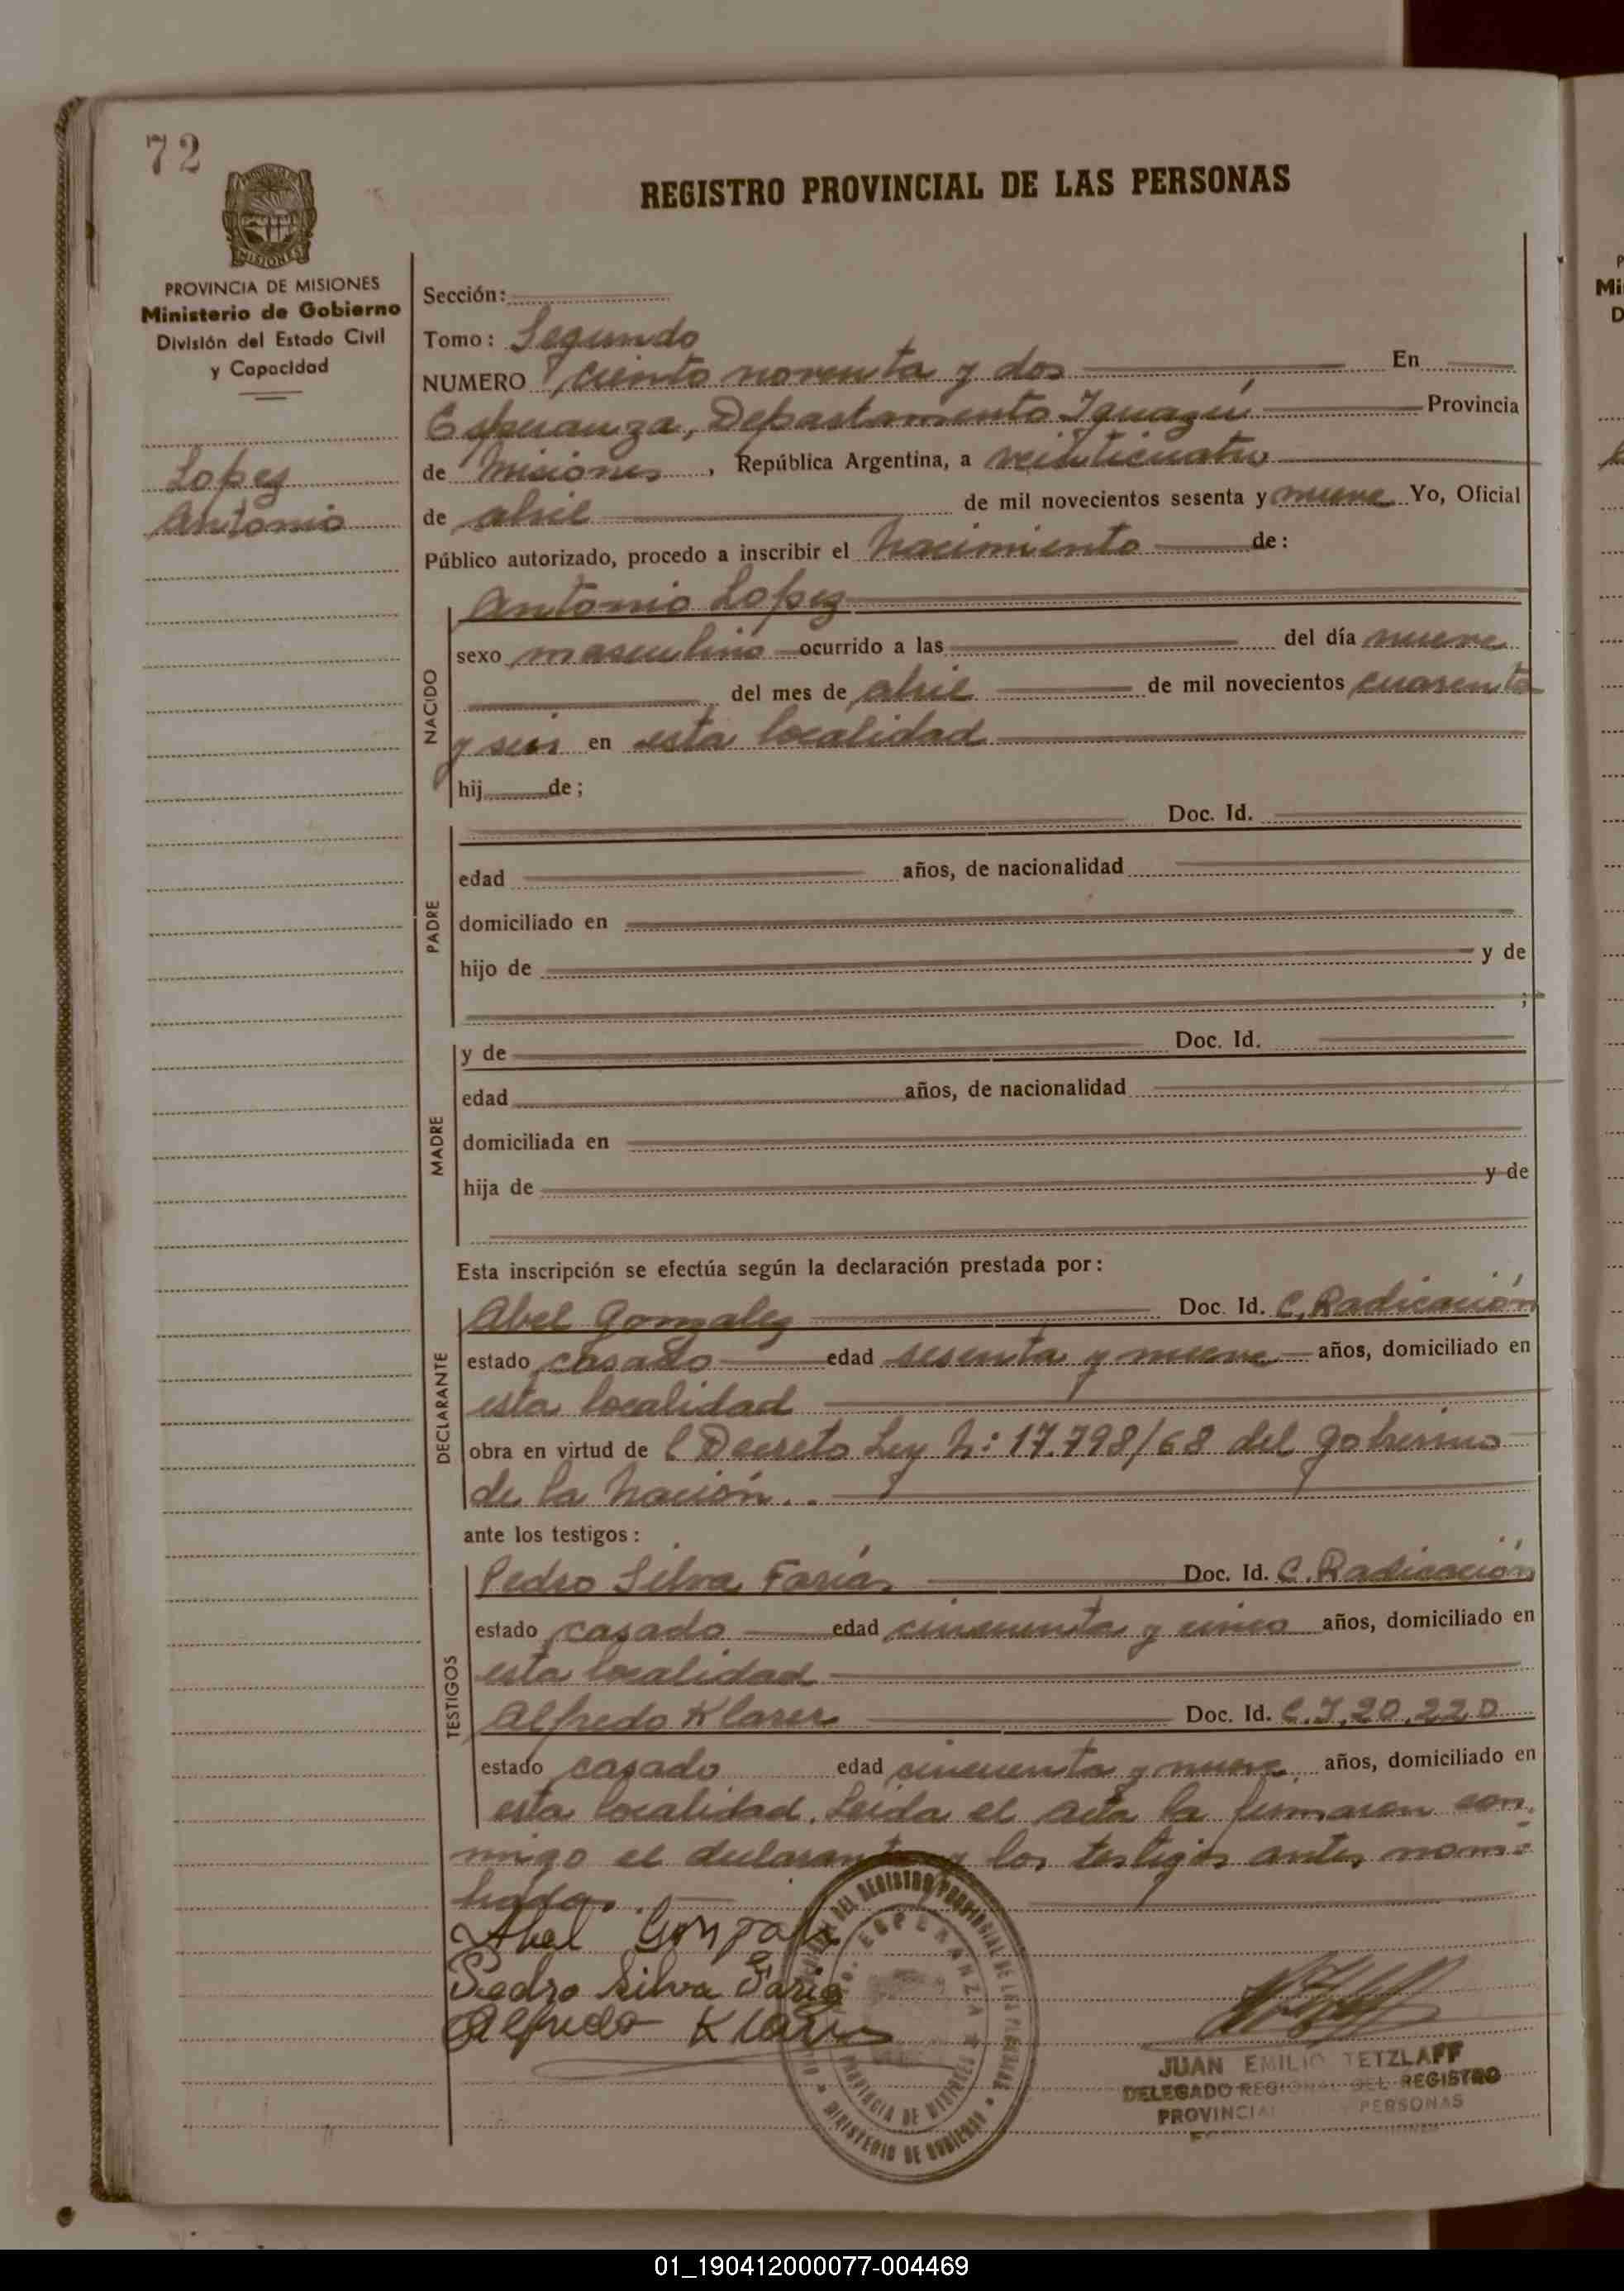 72
REGISTRO PROVINCIAL DE LAS PERSONAS
MISIONES
PROVINCIA DE MISIONES
Ministerio de Gobierno
División del Estado Civil
y Capacidad
Lopez
Antonio
Sección:
Tomo: Segundo
NUMERO ciento noventa y dos En
Esperanza, Departamento Iguazú Provincia
de Misiones, República Argentina, a veinticuatro
de abril de mil novecientos sesenta y nueve Yo, Oficial
Público autorizado, procedo a inscribir el Nacimiento de:
NACIDO
Antonio Lopez
sexo masculino ocurrido a las del día nueve
del mes de abril de mil novecientos cuarenta
y seis en esta localidad
hij de;
PADRE
Doc. Id.
edad años, de nacionalidad
domiciliado en
hijo de y de
;
MADRE
y de Doc. Id.
edad años, de nacionalidad
domiciliada en
hija de y de
Esta inscripción se efectúa según la declaración prestada por:
DECLARANTE
Abel Gonzalez Doc. Id. C. Radicación
estado casado edad sesenta y nueve años, domiciliado en
esta localidad
obra en virtud de l Decreto Ley N: 17.798/68 del gobierno
de la Nación..
ante los testigos:
TESTIGOS
Pedro Silva Farías Doc. Id. C. Radicación
estado casado edad cincuenta y cinco años, domiciliado en
esta localidad
Alfredo Klarer Doc. Id. C.I. 20.220
estado casado edad cincuenta y nueve años, domiciliado en
esta localidad. Leida el acta la firmaron con
migo el declarante y los testigos antes nom
brados.
Abel Gonzalez
Pedro Silva Faria
Alfredo Klarer
ESPERANZA
PROVINCIA DE MISIONES
MINISTERIO DE GOBIERNO
DEL REGISTRO PROVINCIAL DE LAS PERSONAS
JUAN EMILIO TETZLAFF
DELEGADO REGIONAL DEL REGISTRO
PROVINCIAL PERSONAS
01_190412000077-004469